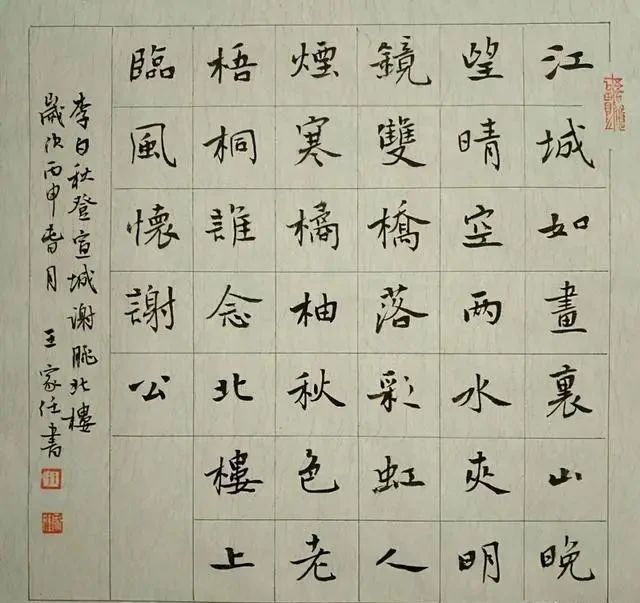 江城如畫裏山晚
望晴空两水夾明
鏡雙橋落彩虹人
煙寒橘柚秋色老
梧桐誰念北樓上
臨風懷謝公
李白秋登宣城谢朓北樓
歲次丙申春月 王家任書